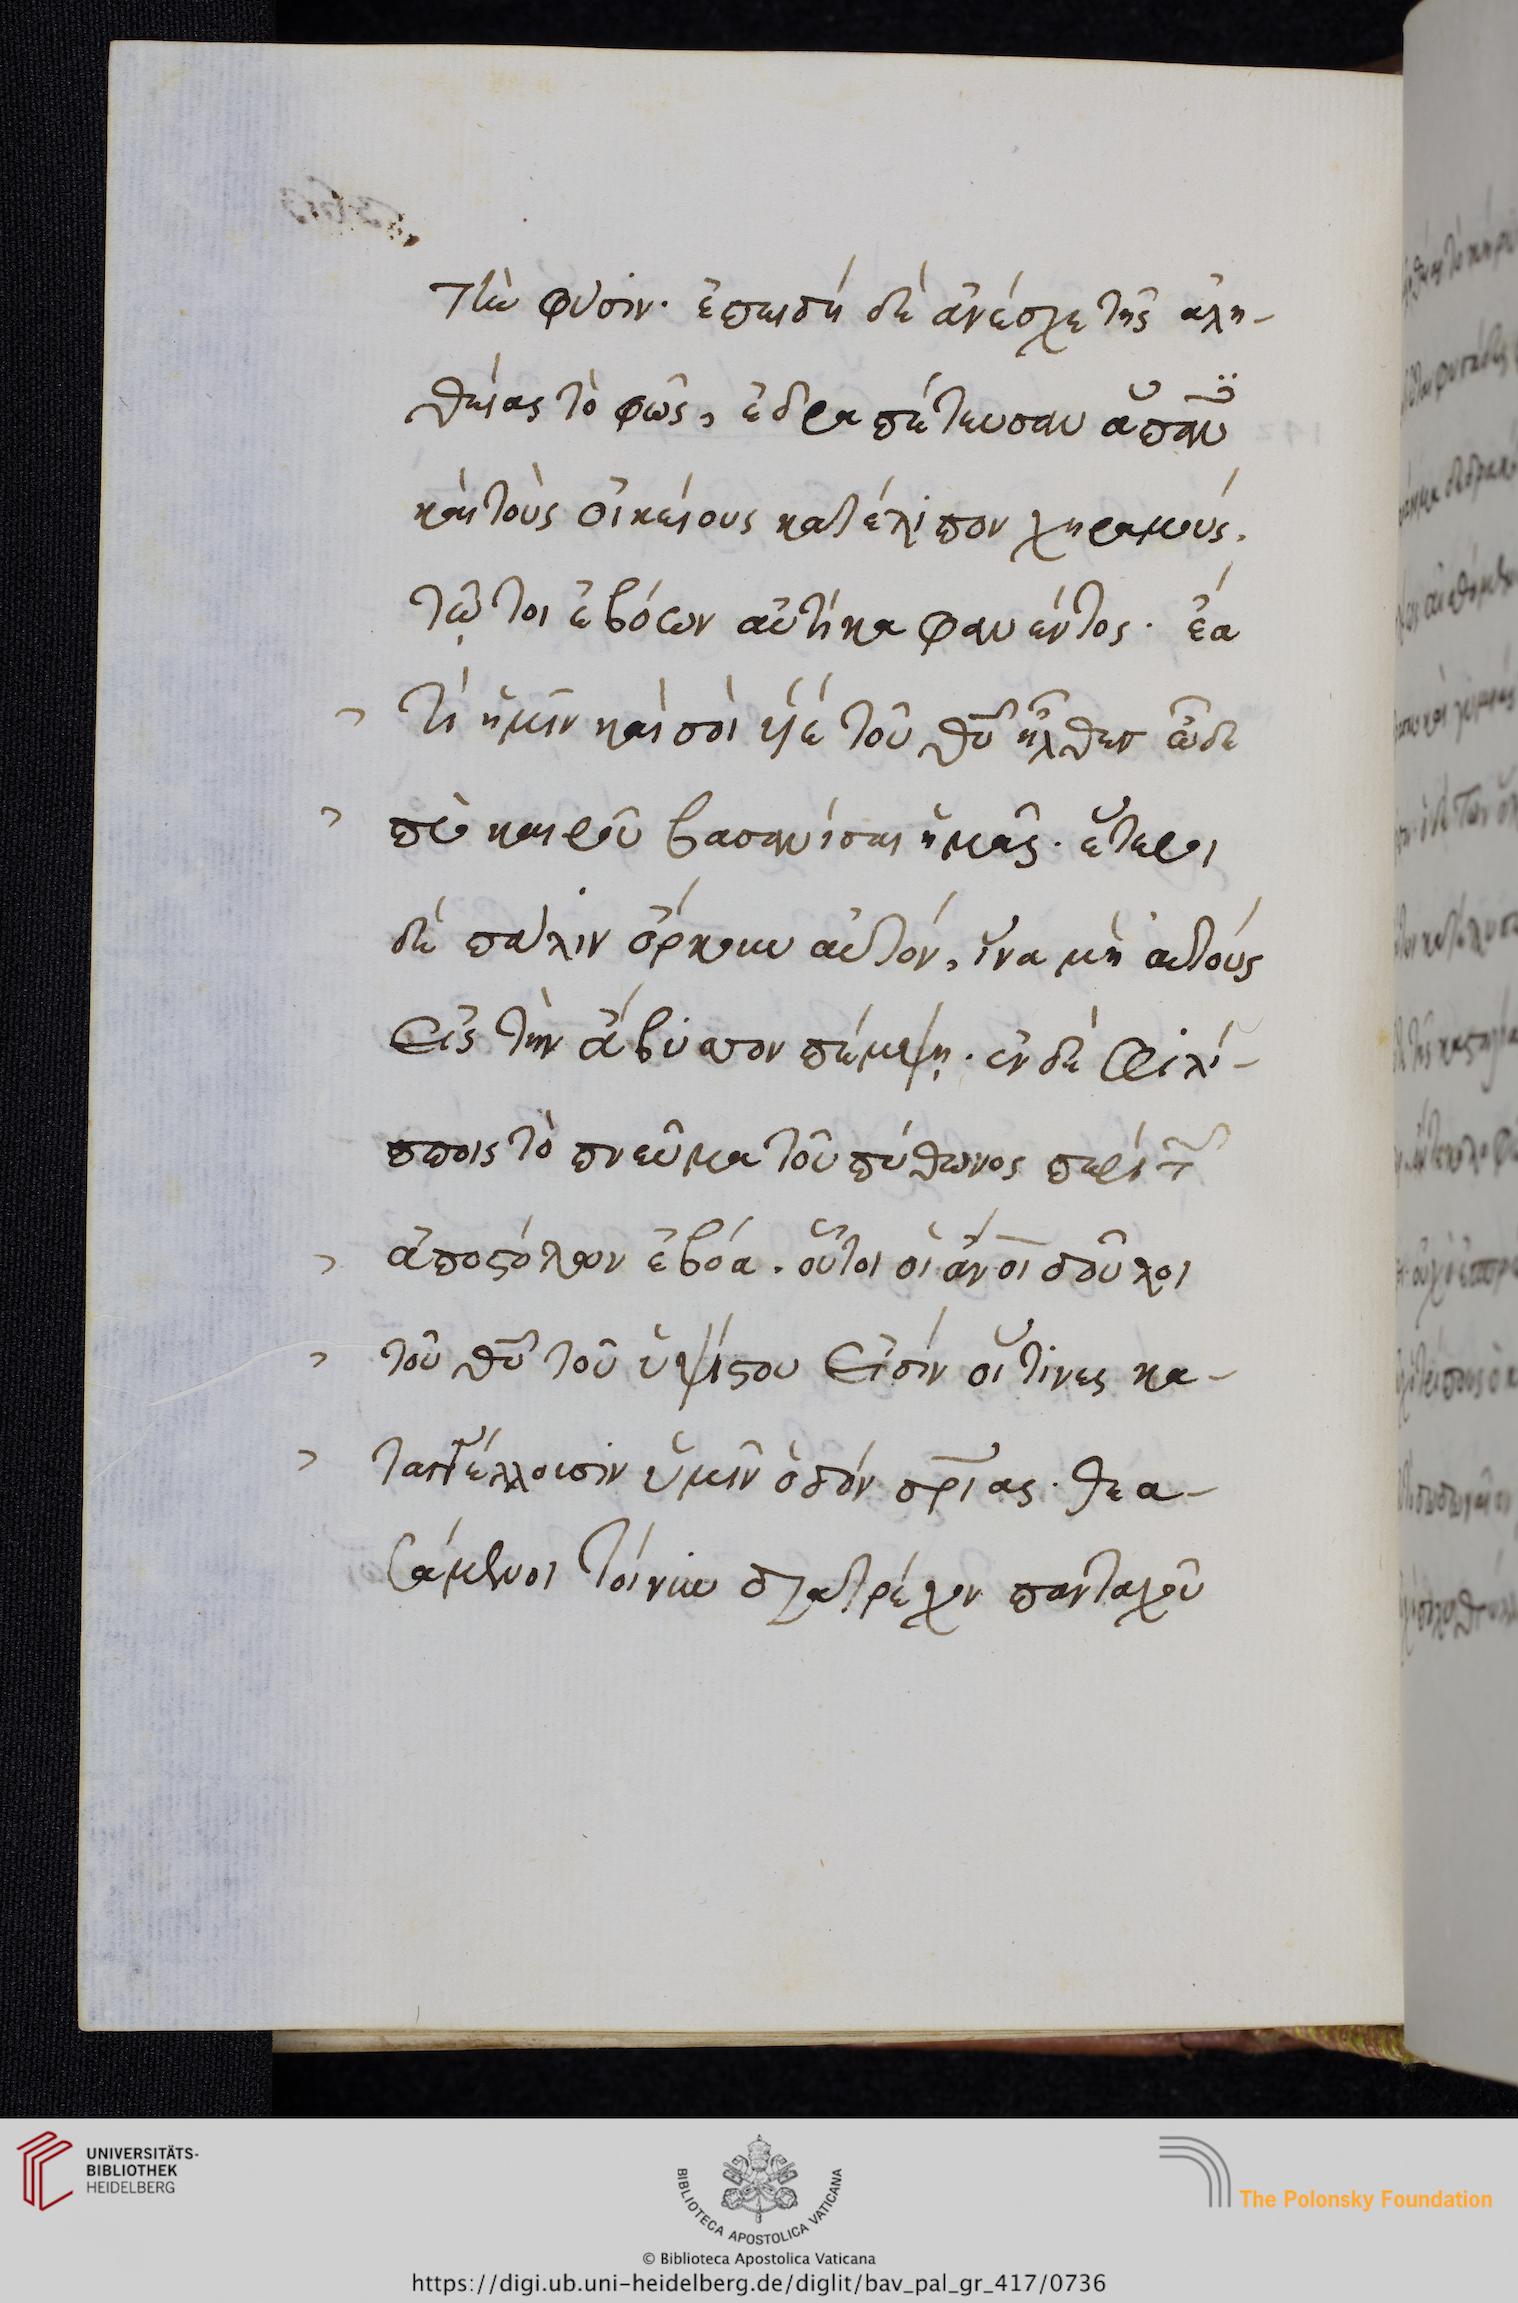 τὴν φύσιν· ἐπειδὴ δὲ ἀνέσχε τῆς ἀλη-
θείας τὸ φῶς, ἐδραπέτευσαν ἅπαν
καὶ τοὺς οἰκείους κατέλιπον χηραμούς.
τῷ τοι ἐβόων αὐτίκα φανέντος· ἔα
τί ἡμῖν καὶ σοὶ υἱὲ τοῦ θυ ἦλθες ὧδε
πρὸ καιροῦ βασανίσαι ἡμᾶς· ἕτεροι
δὲ πάλιν ὅρκουν αὐτόν, ἵνα μὴ αὐτοὺς
εἰς τὴν ἄβυσσον πέμψῃ· ἐν δὲ Φιλί-
πποις τὸ πνεῦμα τοῦ πύθωνος περὶ τ
ἀποστόλων ἐβόα. οὗτοι οἱ ἄνοι δοῦλοι
τοῦ θυ τοῦ ὑψίστου εἰσὶν οἵτινες κα-
ταγγέλλουσιν ὑμῖν ὁδὸν σρίας· θεα-
σάμενοι τοίνυν διατρέχον πανταχοῦ
UNIVERSITÄTS-
BIBLIOTHEK
HEIDELBERG
BIBLIOTECA APOSTOLICA VATICANA
The Polonsky Foundation
© Biblioteca Apostolica Vaticana
https://digi.ub.uni-heidelberg.de/diglit/bav_pal_gr_417/0736